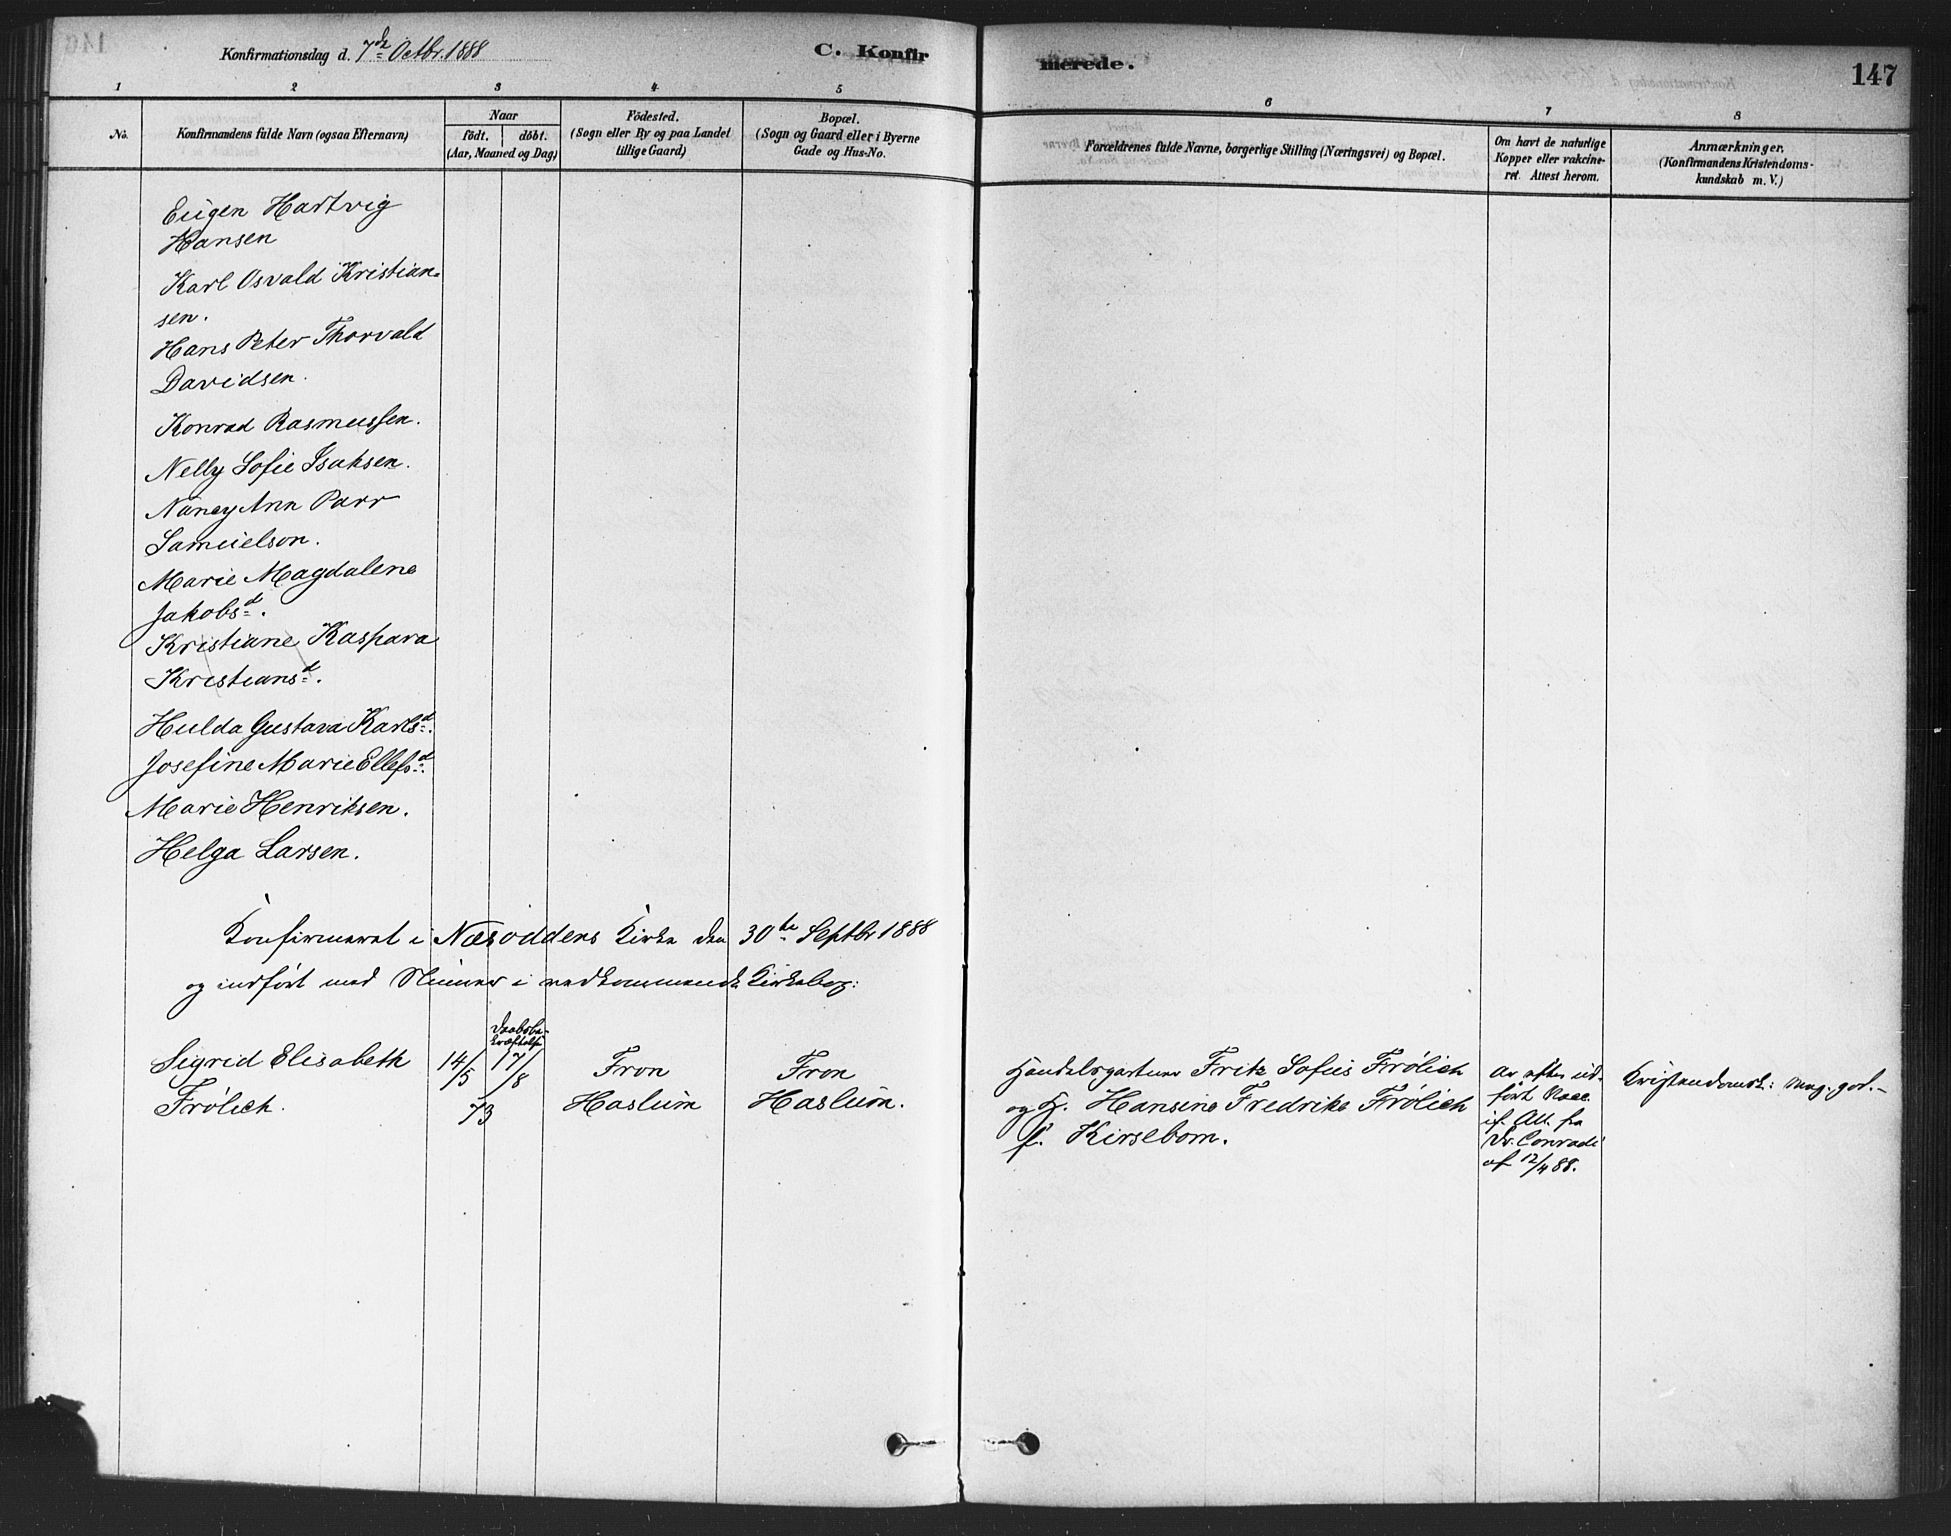 Konfirmationsdag d. 7de Octbr. 1888
C. Konfirmerede.
147
1 2 3 4 5 6 7 8
No.
Konfirmandens fulde Navn (ogsaa Efternavn)
Naar
födt. döbt.
(Aar, Maaned og Dag)
Födested.
(Sogn eller By og paa Landet
tillige Gaard)
Bopæl.
(Sogn og Gaard eller i Byerne
Gade og Hus-No.
Forældrenes fulde Navne, borgerlige Stilling (Næringsvei) og Bopæl.
Om havt de naturlige
Kopper eller vakcine-
ret. Attest herom.
Anmærkninger.
(Konfirmandens Kristendoms-
kundskab m. V.)
Eugen Hartvig
Hansen
Karl Osvald Kristian-
sen.
Hans Peter Thorvald
Davidsen.
Konrad Rasmussen.
Nelly Sofie Isaksen.
Nancy Ann Parr
Samuelson.
Marie Magdalene
Jakobsd.
Kristiane Kaspara
Kristiansd.
Hulda Gustava Karlsd.
Josefine Marie Ellefsd.
Marie Henriksen.
Helga Larsen.
Konfirmeret i Næsoddens Kirke den 30te Septbr 1888
og indført med Numer i vedkommende Kirkebog:
Sigrid Elisabeth
Frølich.
14/5
Daabsbe-
kræftelse
17/8
73
Fron
Haslum
Fron
Haslum.
Handelsgartner Fritz Sofus Frølich
og H. Hansine Fredrike Frølich
f. Kirsebom.
ført Vacc.
if. Att. fra
Dr. Conradi
af 12/4 88.
Kristendomsk: meg. god.-